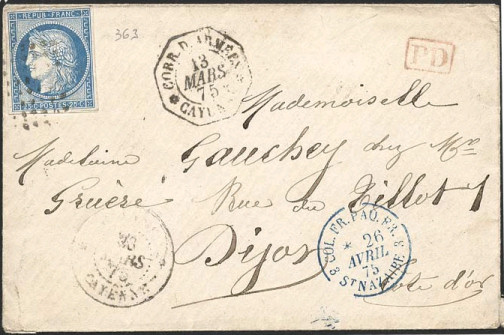 REPUB. FRANC.
25 C. POSTES 25 C.
363
CORR. D. ARMÉES
13
MARS
75
CAYENNE
PD
Mademoiselle
Madeleine Gauchey chez Mme
Gruère Rue du Tillot 1
Dijon
Côte d'or
MARS
CAYENNE
COL. FR. PAQ. FR.
26
AVRIL
75
ST NAZAIRE